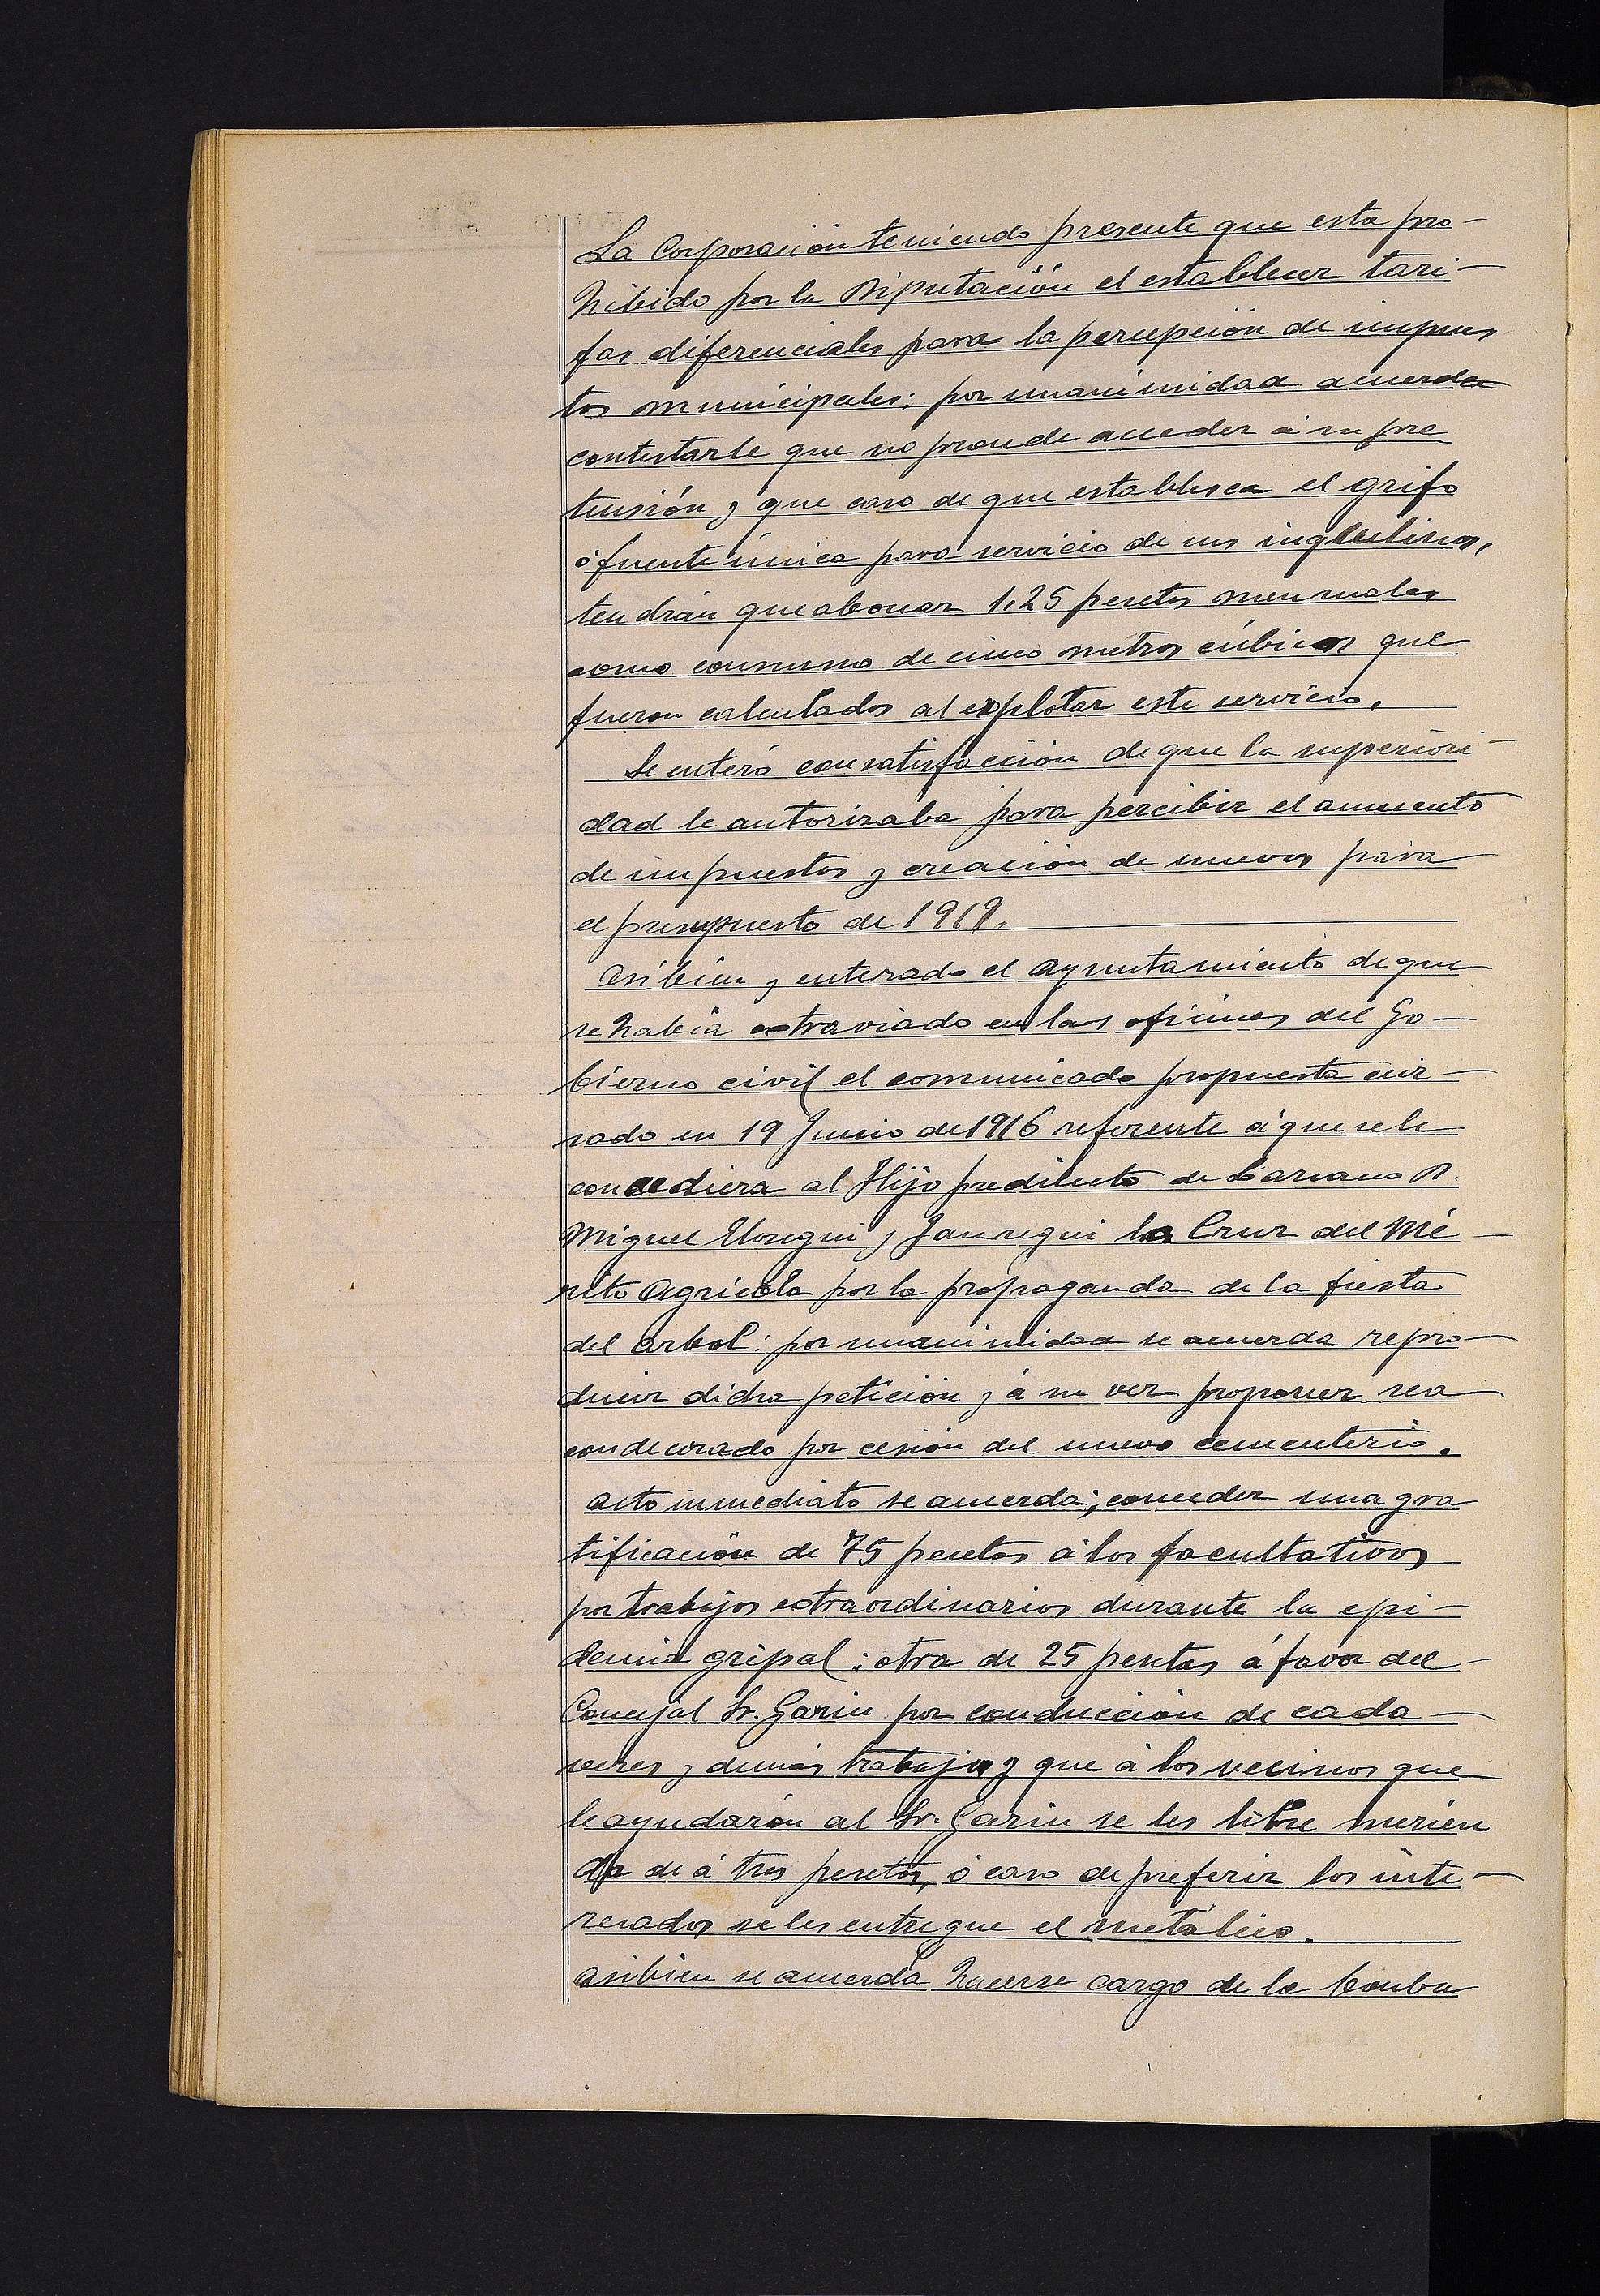 La Corporación teniendo presente que esta pro-
hibido por la Diputación el establecer tari-
fas diferenciales para la percepción de impues
tos municipales: por unanimidad acuerda
contestarle que no procede acceder á su pre
tensión y que caso de que establesca el grifo
ó fuente única para servicio de sus inquilinos,
tendrán que abonar 1,25 pesetas mensuales
como consumo de cinco metros cúbicos que
fueron calculados al explotar este servicio.
Se enteró con satisfacción de que la superiori-
dad le autorizaba para percibir el aumento
de impuestos y creación de nuevos para
el presupuesto de 1919.
Asibien y enterado el Ayuntamiento de que
se había extraviado en las oficinas del Go-
bierno civil el comunicado propuesta cur-
sado en 19 Junio de 1916 referente á que se le
concediera al Hijo predilecto de Larzano D.
Miguel Elosegui y Jauregui la Cruz del Mé-
rito Agrícola por la propaganda de la fiesta
del arbol: por unanimidad se acuerda repro-
ducir dicha petición y á su vez proponer sea
condecorado por cesión del nuevo cementerio.
Acto inmediato se acuerda; conceder una gra
tificación de 75 pesetas á los facultativos
por trabajos extraordinarios durante la epi-
demia gripal: otra de 25 pesetas á favor del
Concejal Sr. Garin por conducción de cada-
veres y demás trabajos y que á los vecinos que
le ayudarón al Sr. Garin se les libre merien
da de á tres pesetas, ó caso de preferir los inte-
resados se les entregue el metálico.
Asibien se acuerda hacerse cargo de la bomba